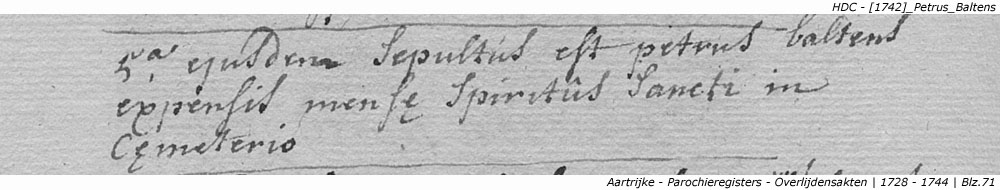 HDC - [1742]_Petrus_Baltens
5ª ejusdem sepultus est petrus baltens
expensis mensę Spiritûs Sancti in
Cęmeterio
Aartrijke - Parochieregisters - Overlijdensakten | 1728 - 1744 | Blz.71